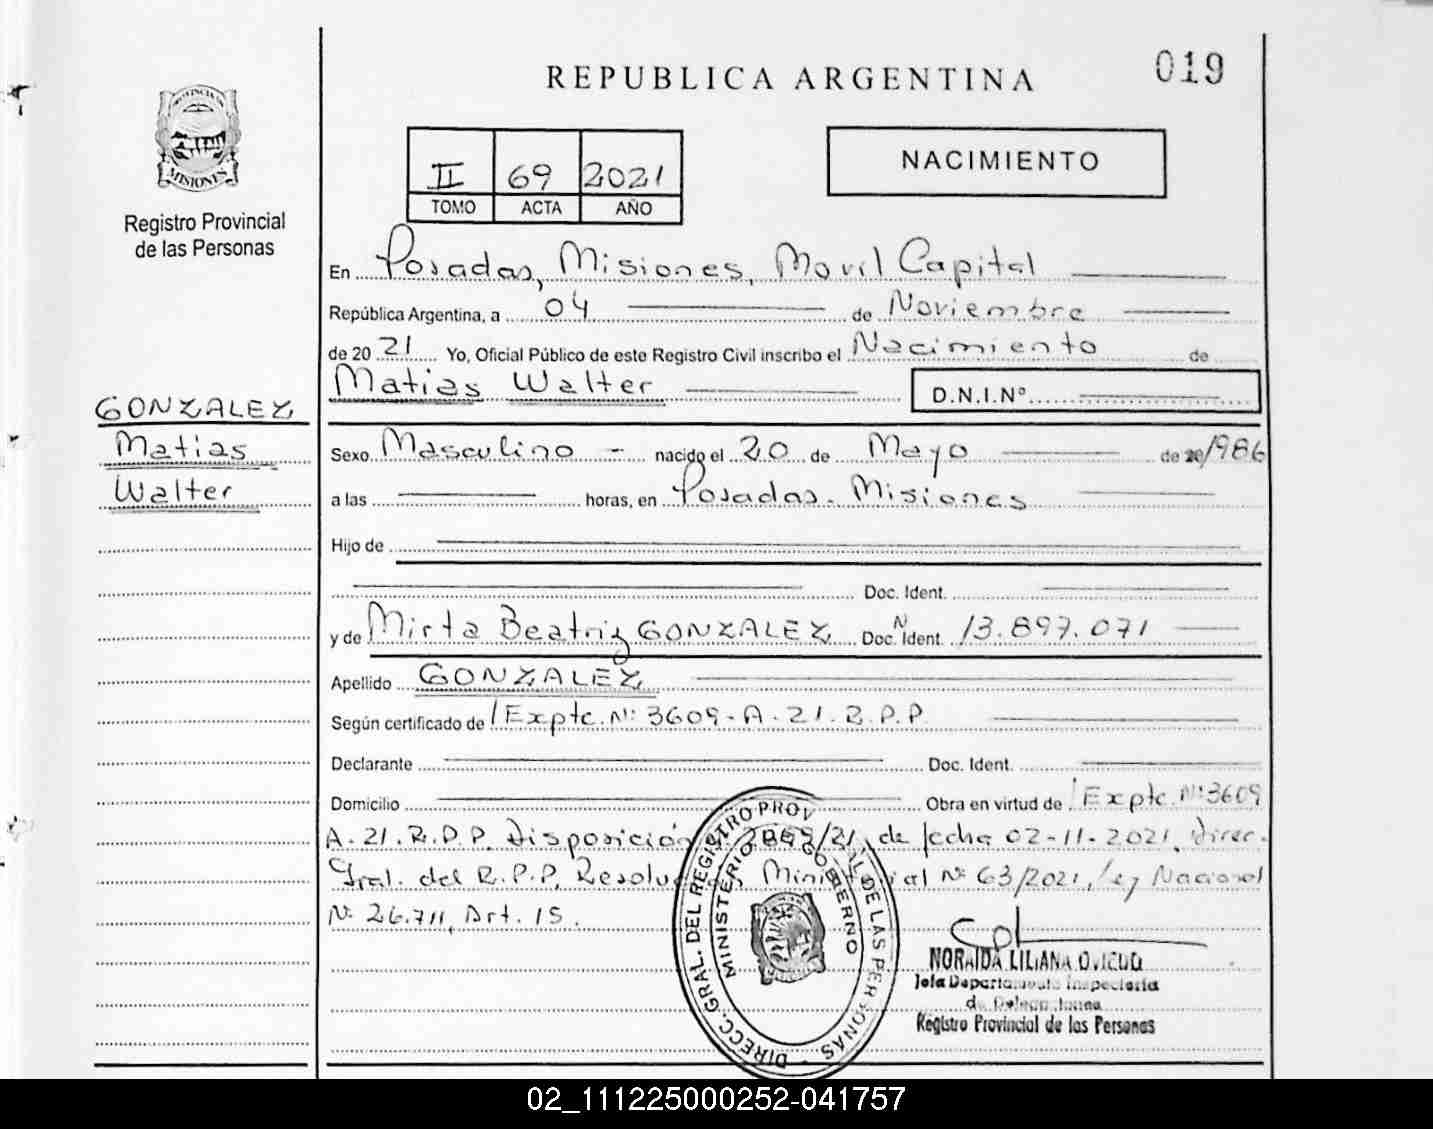 019
REPUBLICA ARGENTINA
PROVINCIA DE
MISIONES
Registro Provincial
de las Personas
II 69 2021
TOMO ACTA AÑO
NACIMIENTO
En Posadas, Misiones, Movil Capital
República Argentina, a 04 de Noviembre
de 20 21 Yo, Oficial Público de este Registro Civil inscribo el Nacimiento de
Matias Walter D.N.I.Nº
GONZALEZ
Matias
Walter
Sexo Masculino - nacido el 20 de Mayo de 1986
a las horas, en Posadas. Misiones
Hijo de
Doc. Ident.
y de Mirta Beatriz GONZALEZ Doc. Ident. Nº 13.897.071
Apellido GONZALEZ
Según certificado de Expte. Nº 3609-A-21.R.P.P.
Declarante Doc. Ident.
Domicilio Obra en virtud de Expte. Nº 3609
A.21.R.P.P. Disposición /21, de fecha 02-11-2021, Direc.
Gral. del R.P.P, Resolución Ministerial Nº 63/2021, Ley Nacional
Nº 26.711, Art. 15.
DIRECC. GRAL. DEL REGISTRO PROV AL DE LAS PERSONAS
MINISTERIO DE GOBIERNO
NORAIDA LILIANA OVIEDO
Jefa Departamento Inspectoria
de Delegaciones
Registro Provincial de las Personas
02_111225000252-041757